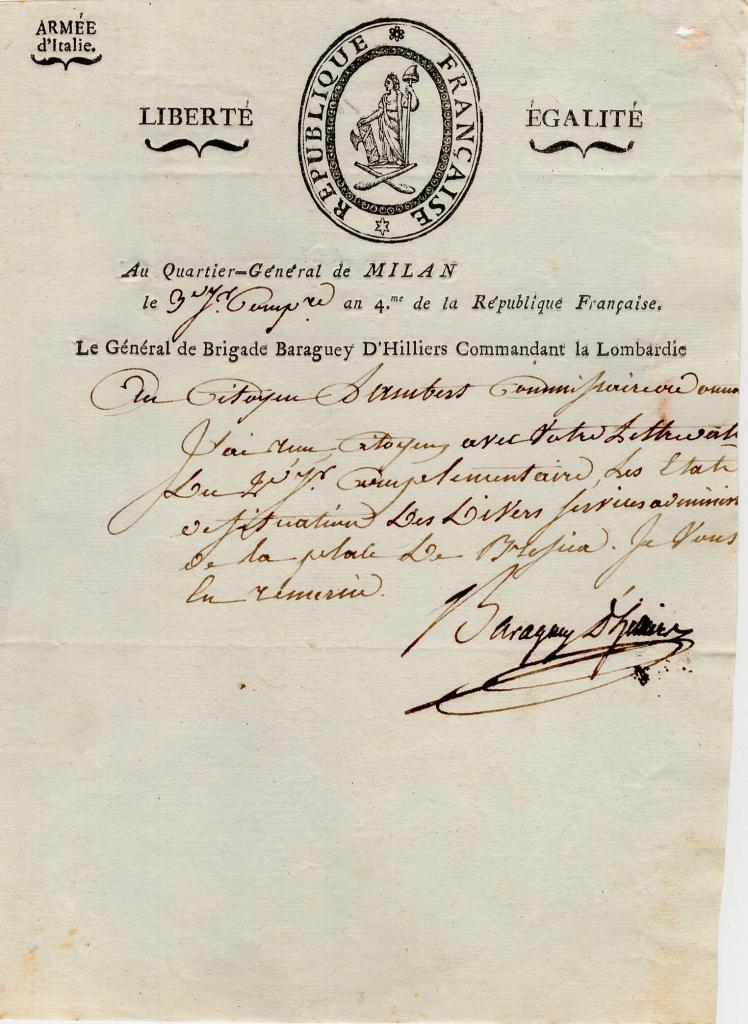 ARMÉE
d'Italie.
LIBERTÉ
RÉPUBLIQUE FRANÇAISE
ÉGALITÉ
Au Quartier-Général de MILAN
le 3.e Jr. Comp.re an 4.me de la République Française.
Le Général de Brigade Baraguey D'Hilliers Commandant la Lombardie
Au Citoyen Lambert Commissaire ordonna
J'ai reçu, Citoyen, avec votre Lettre
du 2.e Jr. Complémentaire, les Etats
de situation des divers services adminis
de la place de Brescia. Je vous
en remercie.
Baraguey D'hilliers